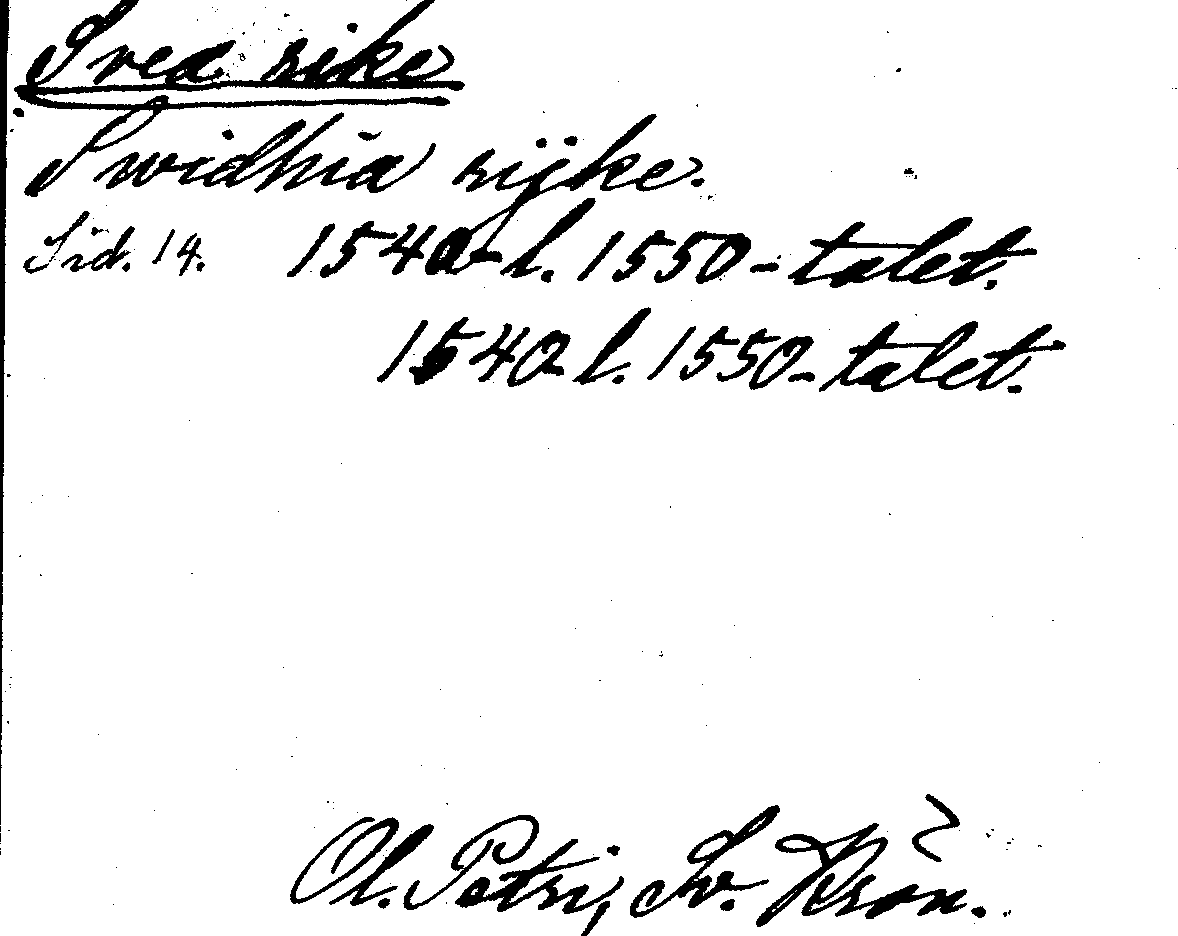 Svea rike
Swidhia rijke.
Sid. 14. 1540- l. 1550-talet.
1540- l. 1550-talet.
Ol. Petri, Sv. Krön.